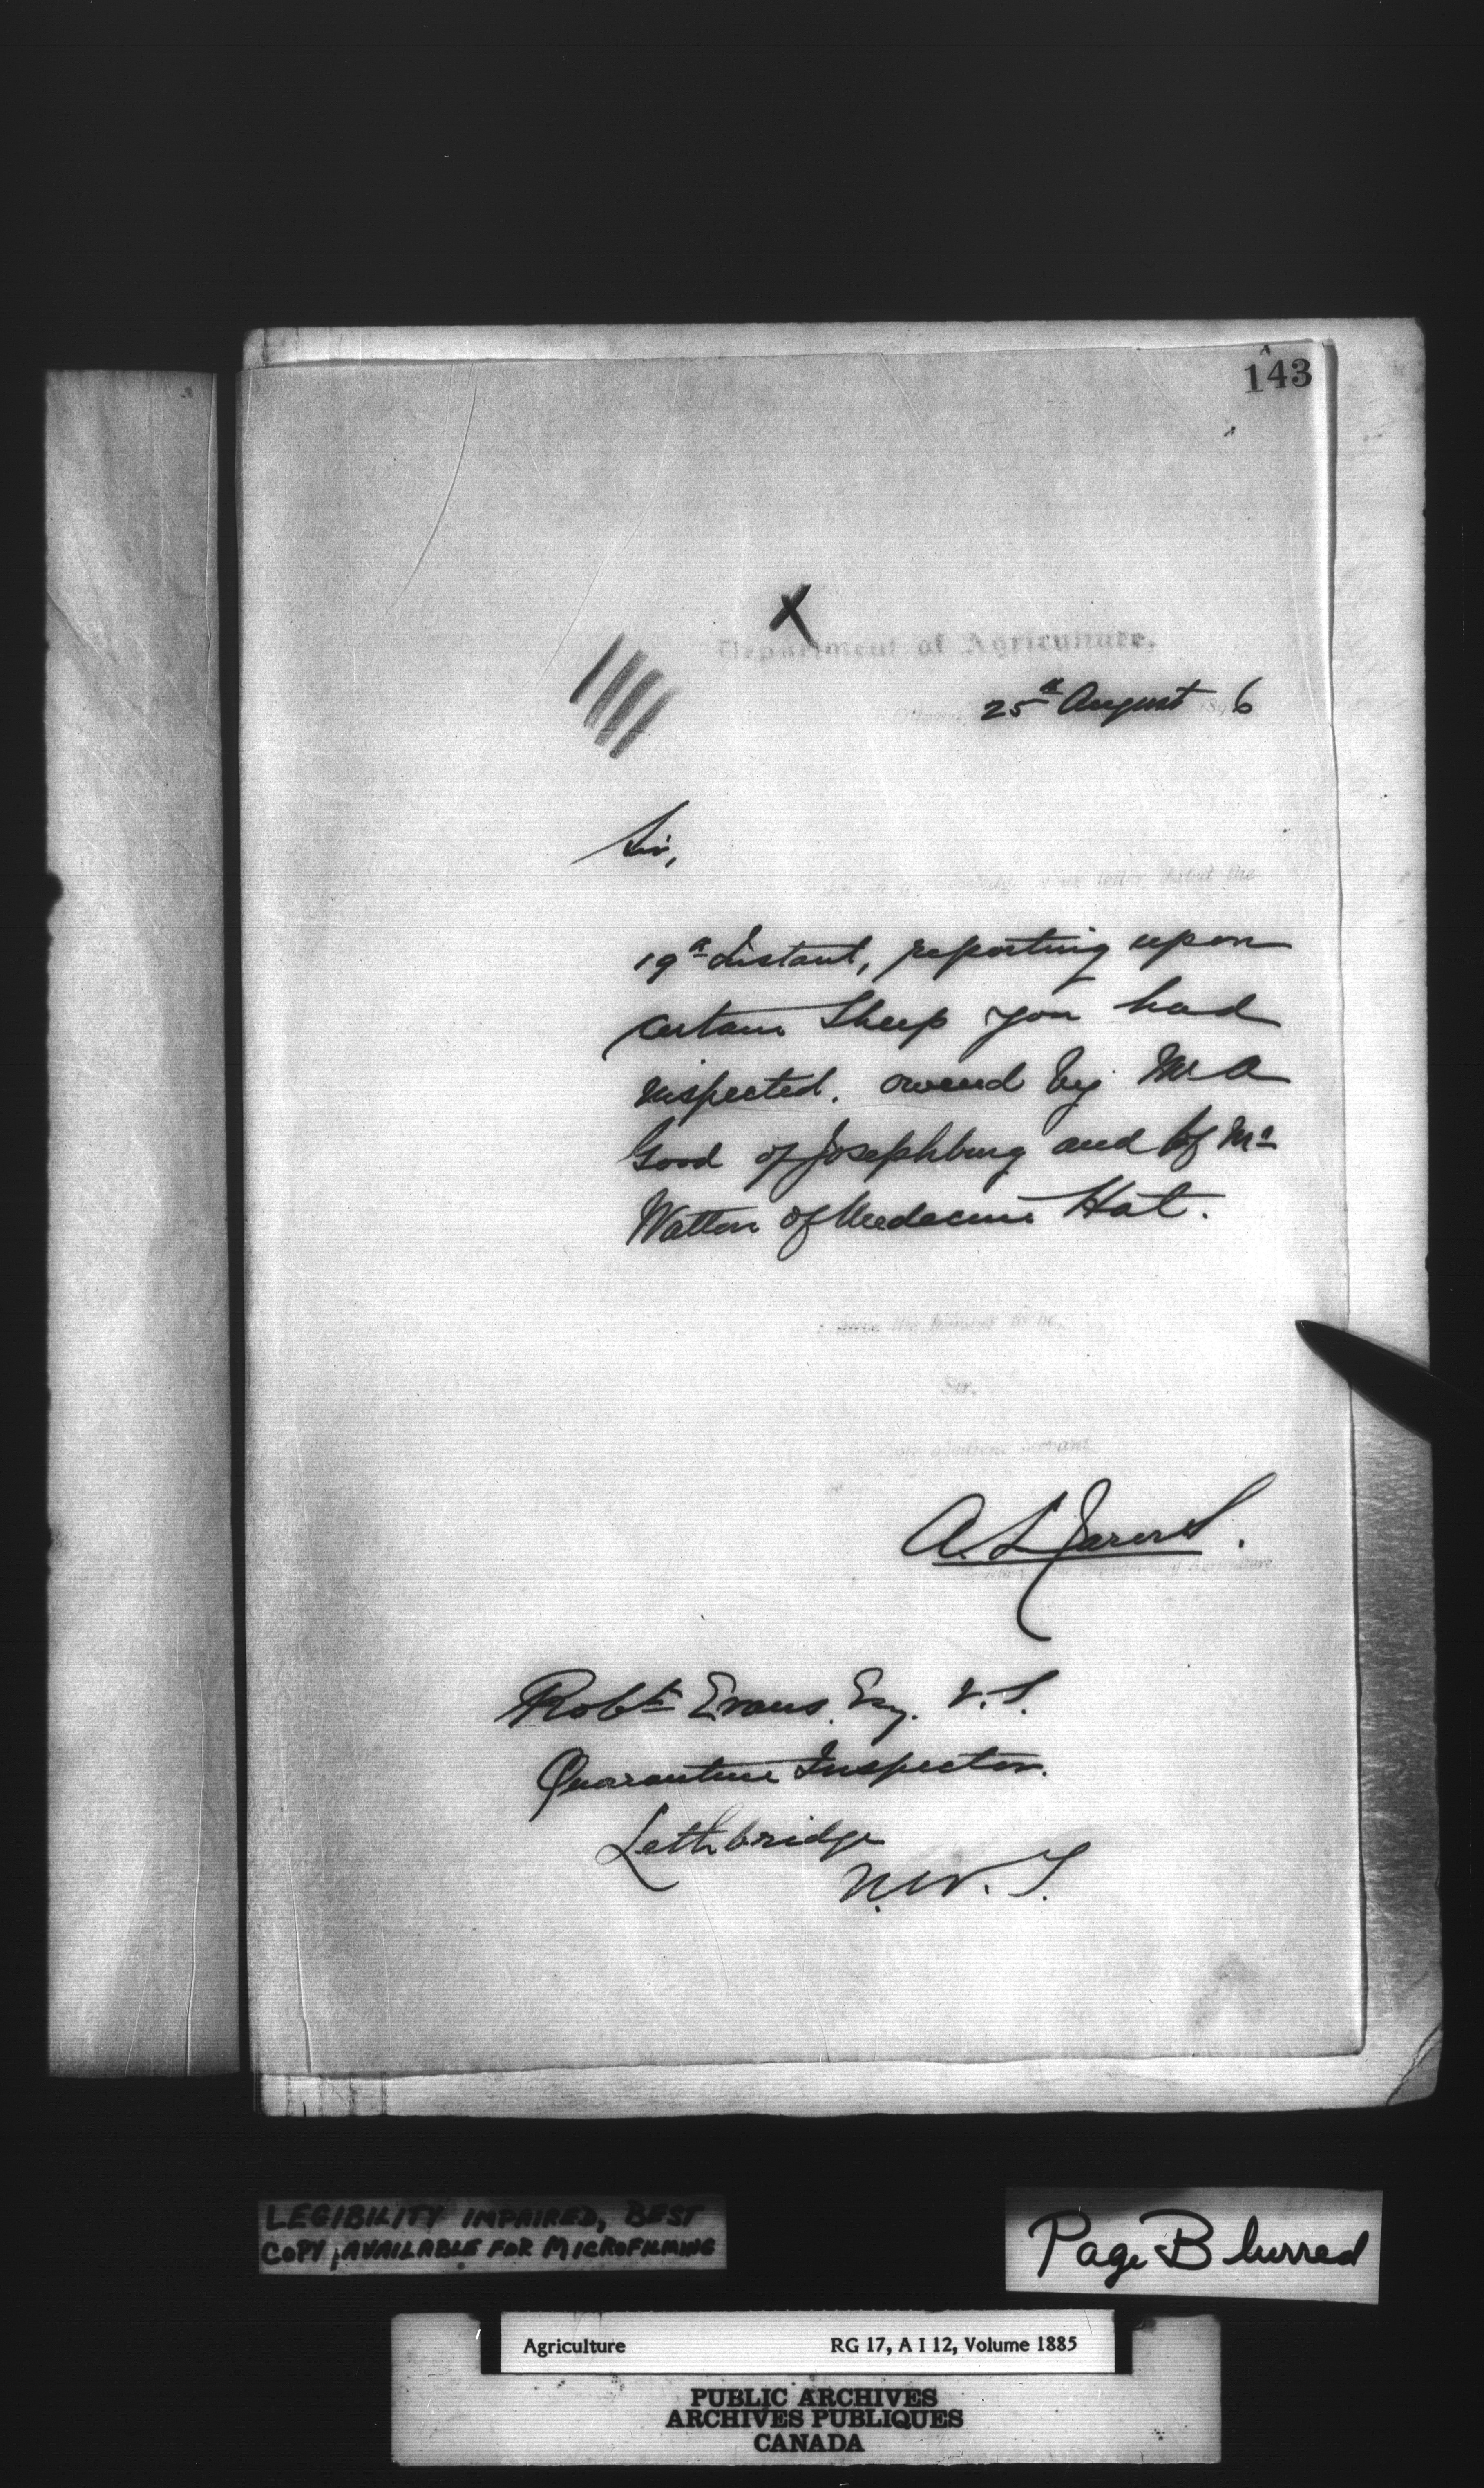 143
X
Department of Agriculture.
Ottawa, 25th August 1896
Sir,
letter, dated the
19th Instant, reporting upon
certain Sheep you had
inspected. owned by Mr A
Good of Josephburg and of Mr
Watton of Medecine Hat.
have the honour to be,
Sir,
obedient servant
A. L Jarvis.
Department of Agriculture.
Robt Evans. Esq. V.S.
Quarantine Inspector.
Lethbridge
N.W.T.
LEGIBILITY IMPAIRED, BEST
COPY AVAILABLE FOR MICROFILMING
Page Blurred
Agriculture RG 17, A I 12, Volume 1885
PUBLIC ARCHIVES
ARCHIVES PUBLIQUES
CANADA